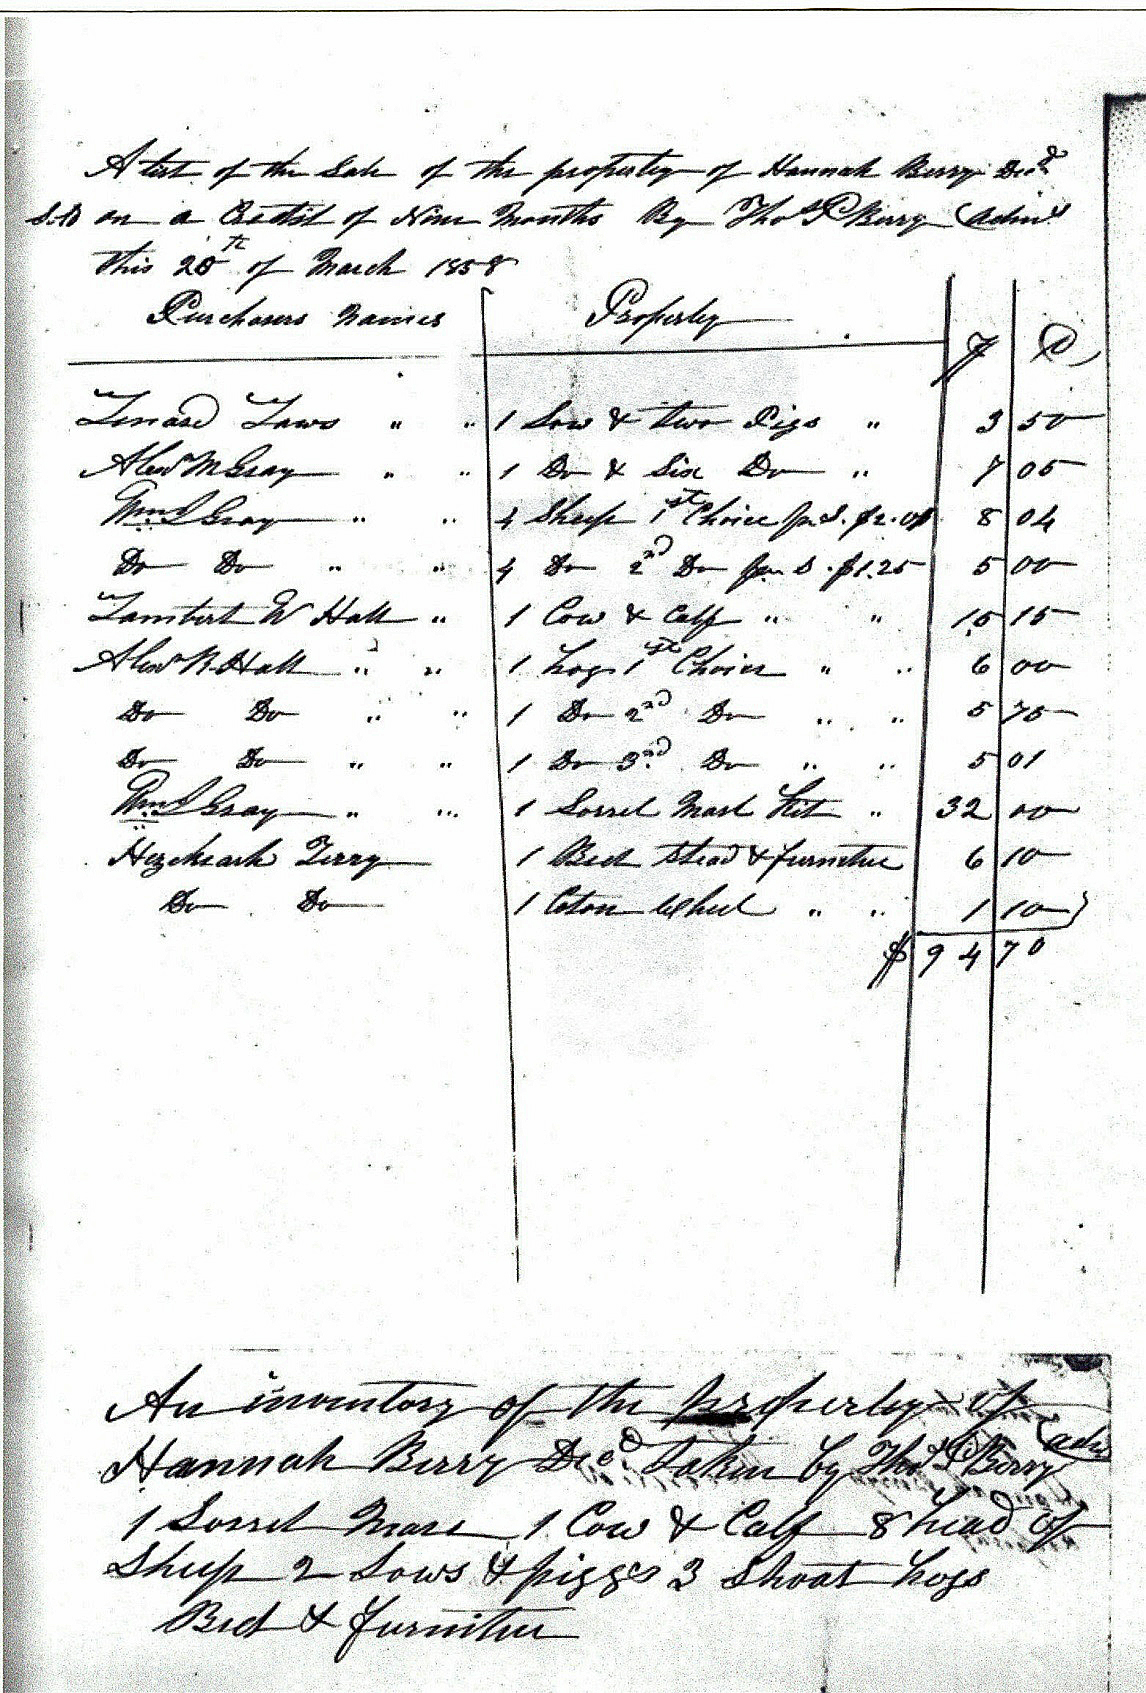 A list of the Sale of the property of Hannah Berry Decd
Sold on a Credit of Nine Months By Thos P Berry Admr
this 20th of March 1858
Purchasers Names Property $ C
Lenard Laws " " 1 Sow & two Pigs " 3 50
Alexr M Gray " " 1 Do & Six Do " 7 05
Wm S Gray " " 4 Sheep 1st Choice pr S. $2.01 8 04
Do Do " " 4 Do 2nd Do pr S. $1.25 5 00
Lambert W Hall " 1 Cow & Calf " " 15 15
Alexr R Hall " " 1 hog 1st Choice " " 6 00
Do Do " " 1 Do 2nd Do " " 5 75
Do Do " " 1 Do 3rd Do " " 5 01
Wm S Gray " " 1 Sorrel Mare " 32 00
Hezekiah Terry 1 Bed Stead & furniture 6 10
Do Do 1 Coton Wheel " " 1 10
$ 94 70
An inventory of the property of
Hannah Berry Decd taken by Thos P Berry adm
1 Sorrel Mare 1 Cow & Calf 8 head of
Sheep 2 Sows & piggs 3 Shoat hogs
Bed & furniture